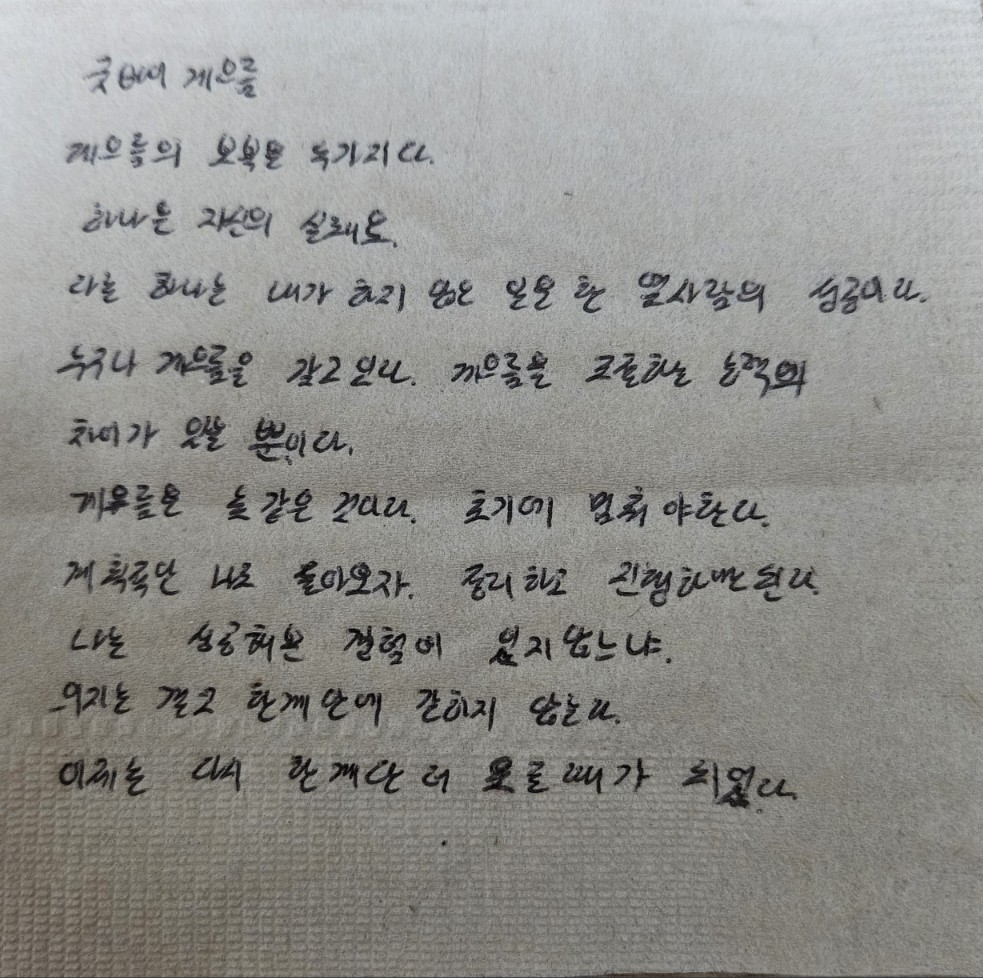 굿바이 게으름
게으름의 보복은 두가지다.
하나는 자신의 실패요,
다른 하나는 내가 하지 않은 일을 한 옆사람의 성공이다.
누구나 게으름을 갖고 있다. 게으름을 조절하는 능력의
차이가 있을 뿐이다.
게으름은 늪 같은 것이다. 초기에 멈춰야한다.
계획했던 나로 돌아오자. 정리하고 진행하면 된다.
나는 성공해본 경험이 있지않느냐.
의지는 결코 한계안에 갇히지 않는다.
이제는 다시 한계단 더 오를때가 되었다.